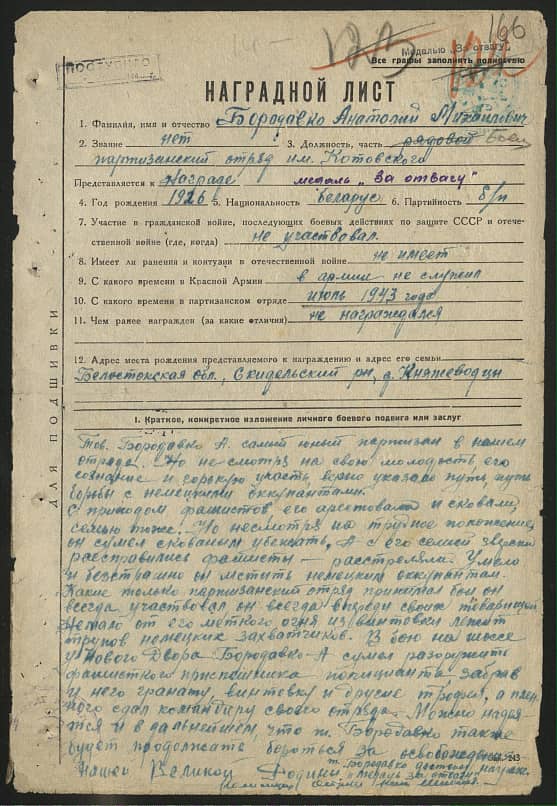 196
Медалью „За отвагу"
Все графы заполнить полностью
ПОСТУПИЛО
НАГРАДНОЙ ЛИСТ
1. Фамилия, имя и отчество Бородавко Анатолий Михайлович
2. Звание нет 3. Должность, часть рядовой боец
партизанский отряд им. Котовского
Представляется к награде медаль „За отвагу"
4. Год рождения 1926 5. Национальность беларус 6. Партийность б/п
7. Участие в гражданской войне, последующих боевых действиях по защите СССР и отече-
ственной войне (где, когда) не участвовал.
8. Имеет ли ранения и контузии в отечественной войне не имеет
9. С какого времени в Красной Армии в армии не служил
10. С какого времени в партизанском отряде июль 1943 года
11. Чем ранее награжден (за какие отличия) не награждался
12. Адрес места рождения представляемого к награждению и адрес его семьи
Белостокская обл., Скидельский рн, д. Княжеводцы
ДЛЯ ПОДШИВКИ
I. Краткое, конкретное изложение личного боевого подвига или заслуг
Тов. Бородавко А. самый юный партизан в нашем
отряде. Но не смотря на свою молодость его
сознание и горькую участь, верно указало путь, путь
борьбы с немецкими оккупантами.
С приходом фашистов его арестовали и сковали,
семью тоже. Но несмотря на трудное положение
он сумел скованым убежать. А с его семьей зверски
расправились фашисты — расстреляли. Умело
и безстрашно он мстить немецким оккупантам.
Какие только партизанский отряд принимал бои он
всегда участвовал он всегда впереди своих товарищей
Немало от его меткого огня из винтовки лежит
трупов немецких захватчиков. В бою на шоссе
у Нового Двора Бородавко А сумел разоружить
фашисткого приспешника полицианта, забрав
у него гранату, винтовку и другие трофеи, а плен-
ного сдал командиру своего отряда. Можно надея-
тся и в дальнейшем, что т. Бородавко также
будет продолжать бороться за освобождение
нашей Великой Родины. т. Бородавко достоин награжд.
„медаль за отвагу"